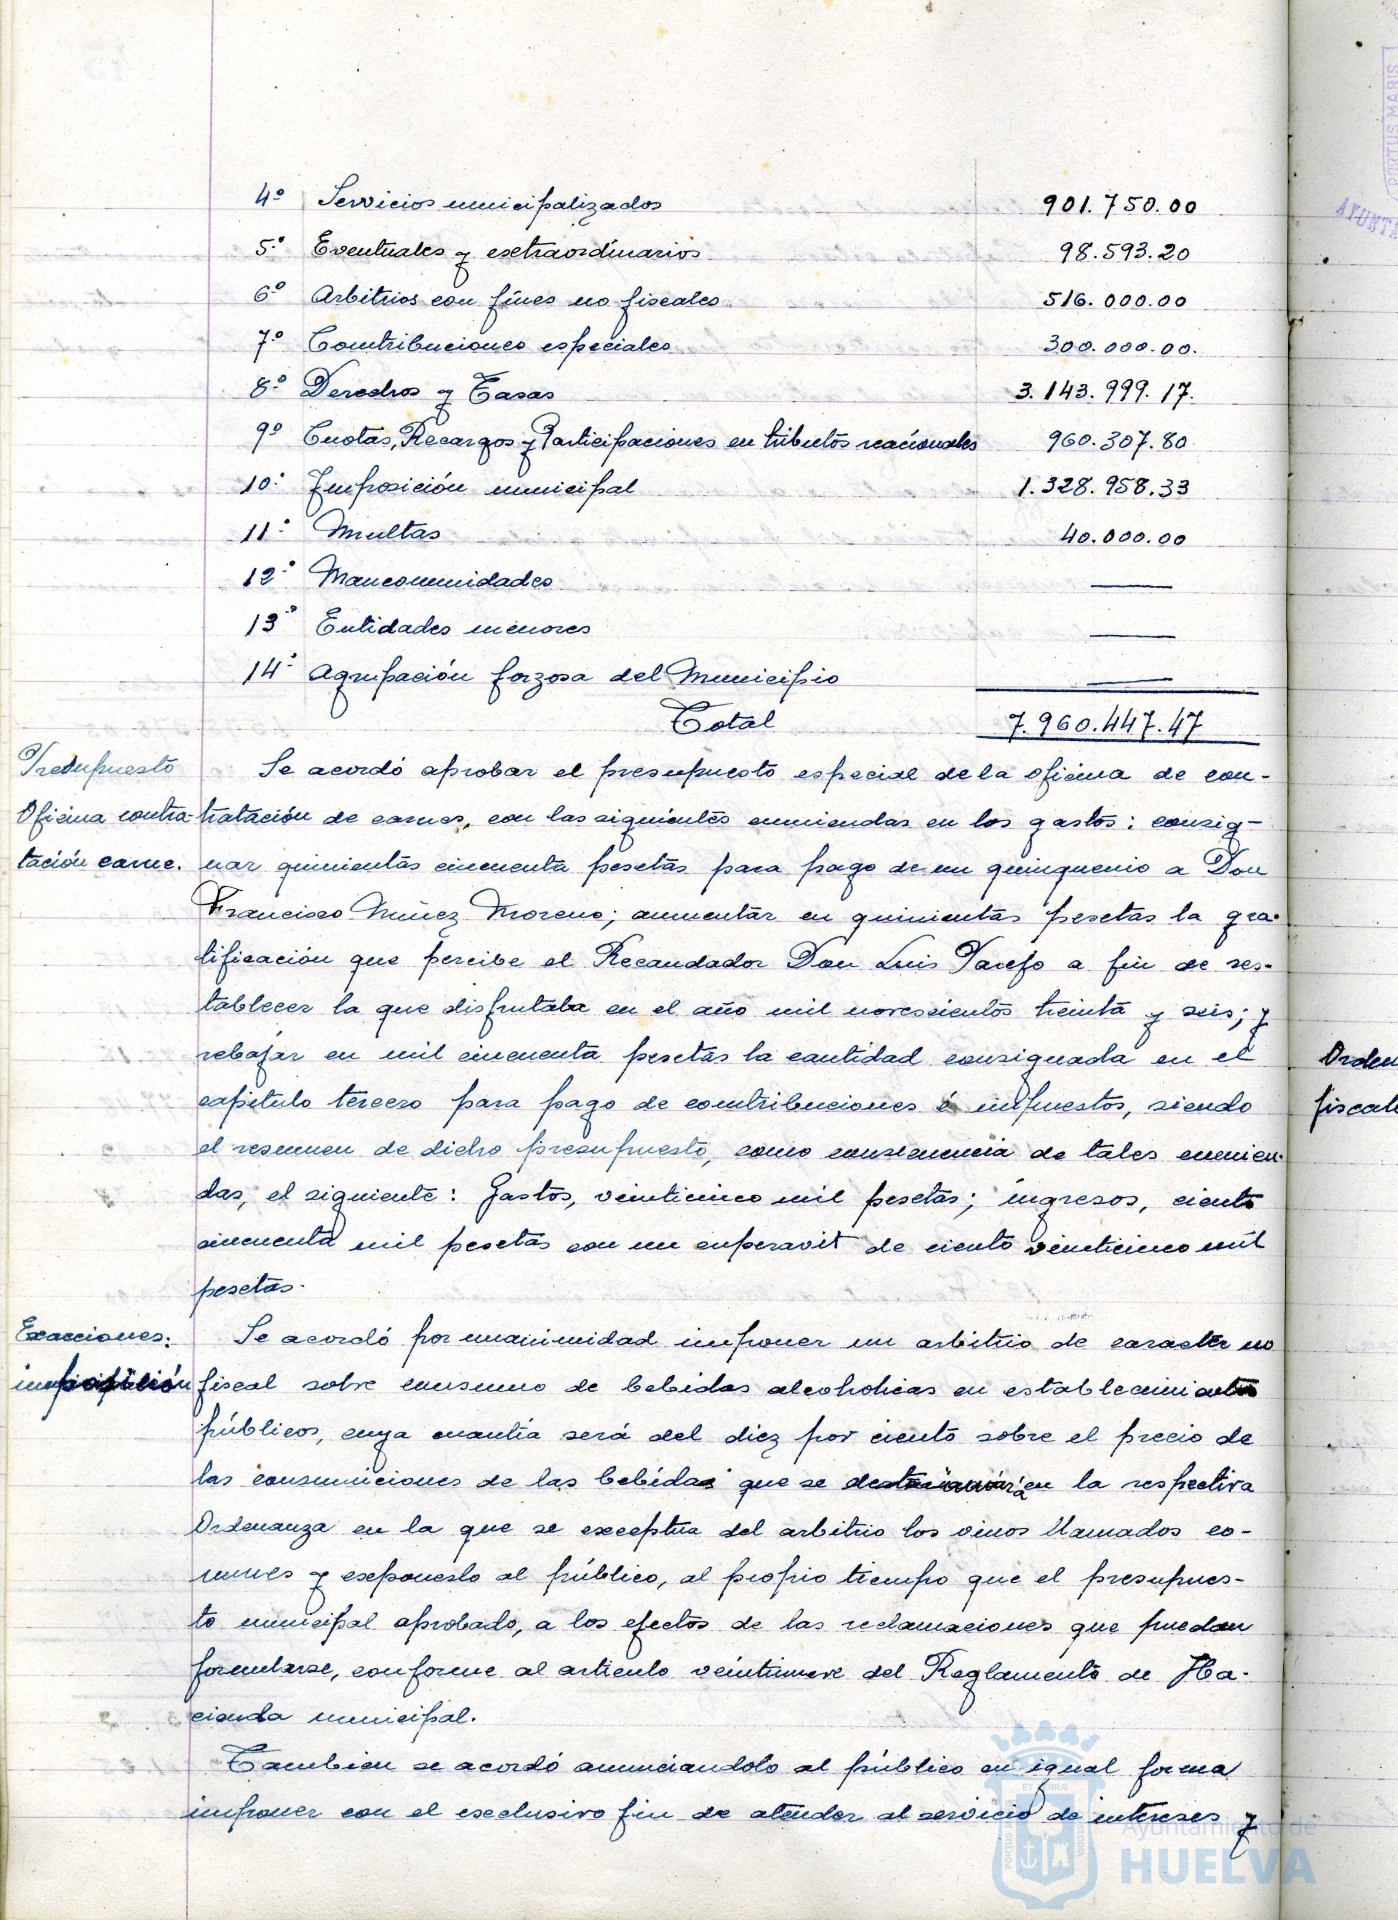 4º Servicios municipalizados 901.750.00
5º Eventuales y extraordinarios 98.593.20
6º Arbitrios con fines no fiscales 516.000.00
7º Contribuciones especiales 300.000.00.
8º Derechos y Tasas 3.143.999.17.
9º Cuotas, Recargos y Participaciones en tributos nacionales 960.307.80
10º Imposición municipal 1.328.958.33
11º Multas 40.000.00
12º Mancomunidades ——
13º Entidades menores ——
14º Agrupación forzosa del Municipio ——
Total 7.960.447.47
Presupuesto
Oficina contra-
tación carne.
Se acordó aprobar el presupuesto especial de la oficina de con-
tratación de carnes, con las siguientes enmiendas en los gastos: consig-
nar quinientas cincuenta pesetas para pago de un quinquenio a Don
Francisco Núñez Moreno; aumentar en quinientas pesetas la gra-
tificación que percibe el Recaudador Don Luis Parejo a fin de res-
tablecer la que disfrutaba en el año mil novescientos treinta y seis; y
rebajar en mil cincuenta pesetas la cantidad consignada en el
capítulo tercero para pago de contribuciones é impuestos, siendo
el resumen de dicho presupuesto, como consecuencia de tales enmien-
das, el siguiente: Gastos, veinticinco mil pesetas; ingresos, ciento
cincuenta mil pesetas con un superavit de ciento veinticinco mil
pesetas.
Exacciones:
imposición
Se acordó por unanimidad imponer un arbitrio de caracter no
fiscal sobre consumo de bebidas alcoholicas en establecimientos
públicos, cuya cuantía será del diez por ciento sobre el precio de
las consumiciones de las bebidas que se en la respectiva
Ordenanza en la que se exceptua del arbitrio los vinos llamados co-
munes y exponerlo al público, al propio tiempo que el presupues-
to municipal aprobado, a los efectos de las reclamaciones que puedan
formularse, conforme al articulo veintinueve del Reglamento de Ha-
cienda municipal.
Tambien se acordó anunciandolo al público en igual forma
imponer con el exclusivo fin de atender al servicio de intereses y
Orden
fiscal
PORTUS MARIS
AYUNTA
Ayuntamiento de
HUELVA